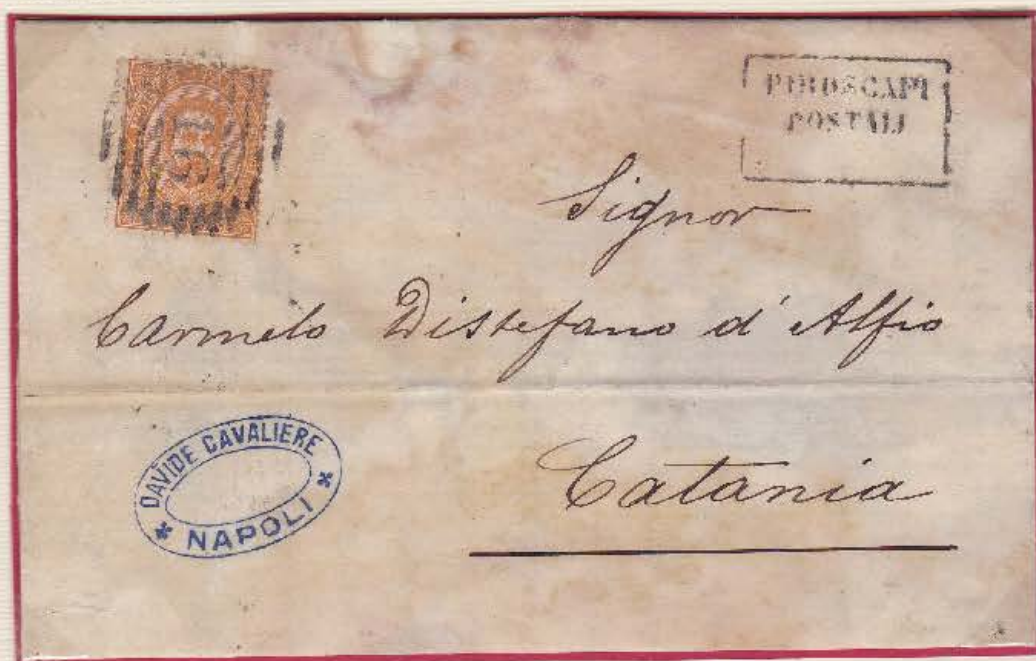 PIROSCAFI
POSTALI
Signor
Carmelo Distefano d'Alfio
Catania
DAVIDE CAVALIERE
* NAPOLI *